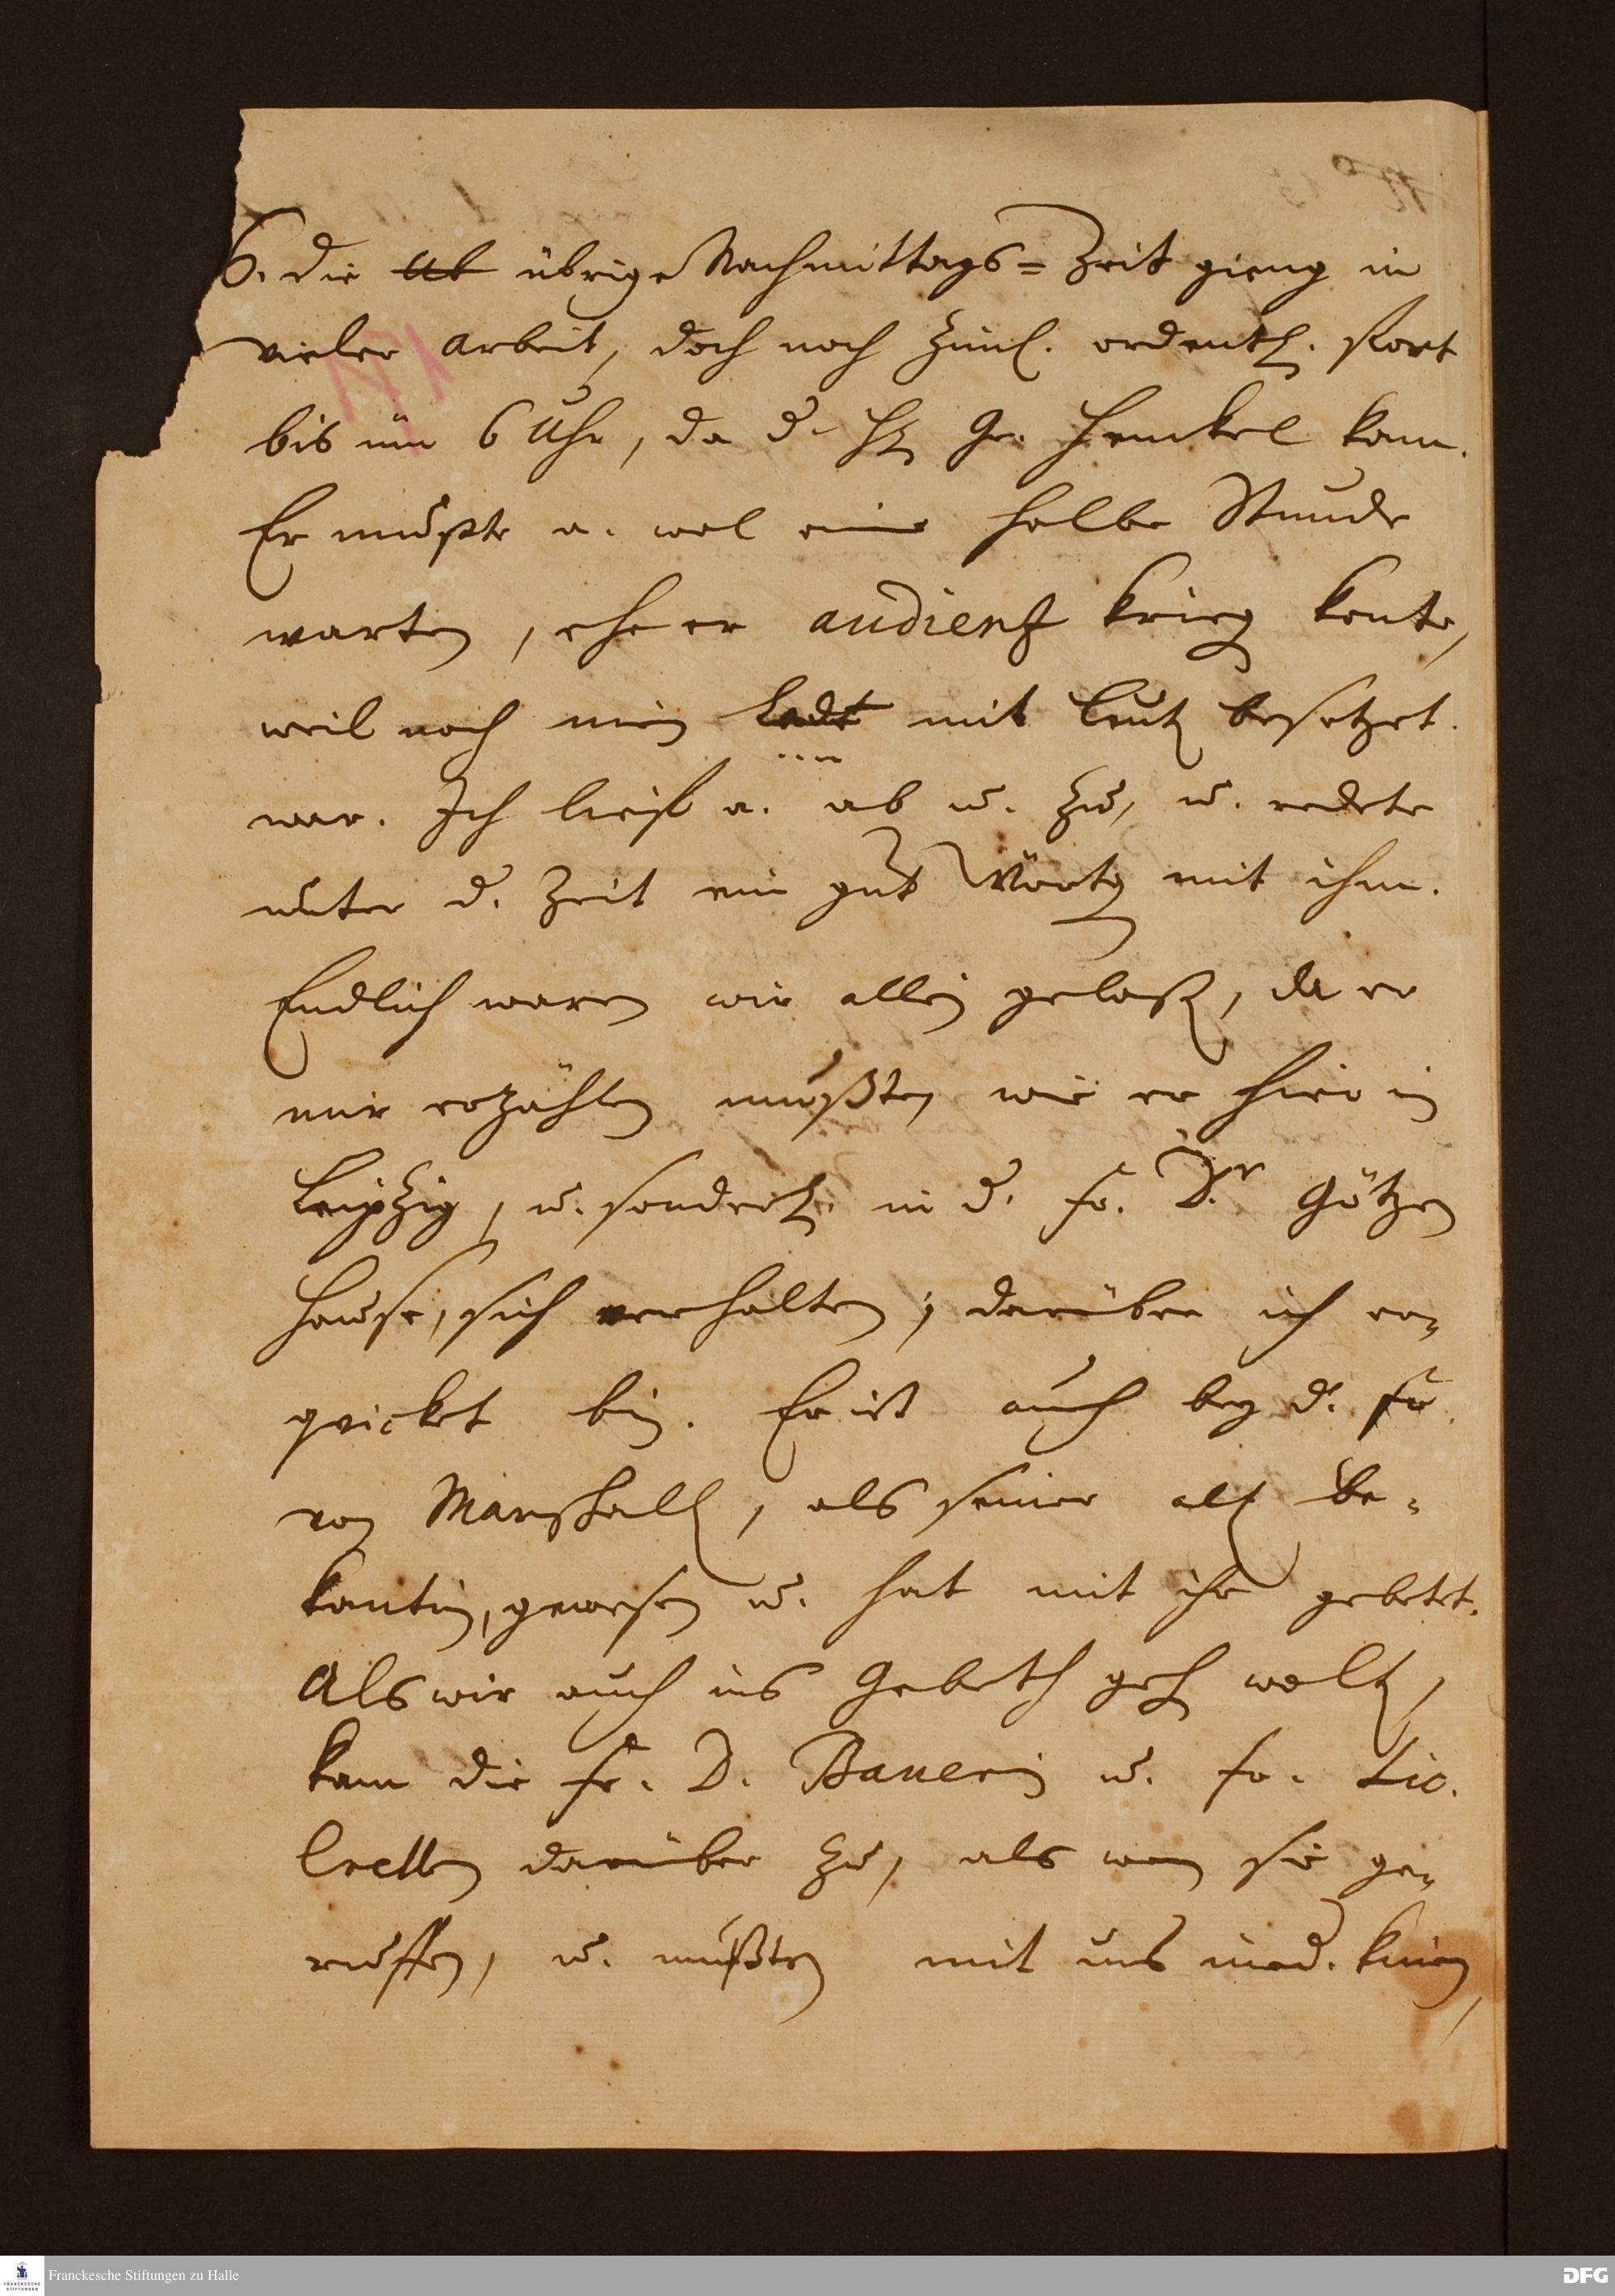 6. die Ab übrige Nachmittags=Zeit gieng in
vieler arbeit, doch noch ziml. ordentl. fort
bis üm 6 Uhr, da d. H. Gr. Henckel kam.
Er mußte a. wol eine halbe Stunde
warten, ehe er audienz krieg konte,
weil noch mein mit Leut besetzet
war. Ich lieff a. ab u. zu, u. redete
unter d. Zeit ein gut Wörtg mit ihm.
Endlich waren wir allein gelaß, da er
mir erzählen mußte, wie er hier in
Leipzig, u. sonderl. in d. Fr. D.r Götzen
Hause, sich verhalten; darüber ich er-
quicket bin. Er ist auch bey d. Fr.
von Marschall, als seiner alt Be-
kantin, gewesen u. hat mit ihr gebetet.
Als wir auch ins Gebeth geh wolt,
kam die Fr. D. Bauerin u. Fr. Lic.
darüber zu, als wen sie ge-
ruffen, u. mußten mit uns nied. knien,
Franckesche Stiftungen zu Halle
DFG